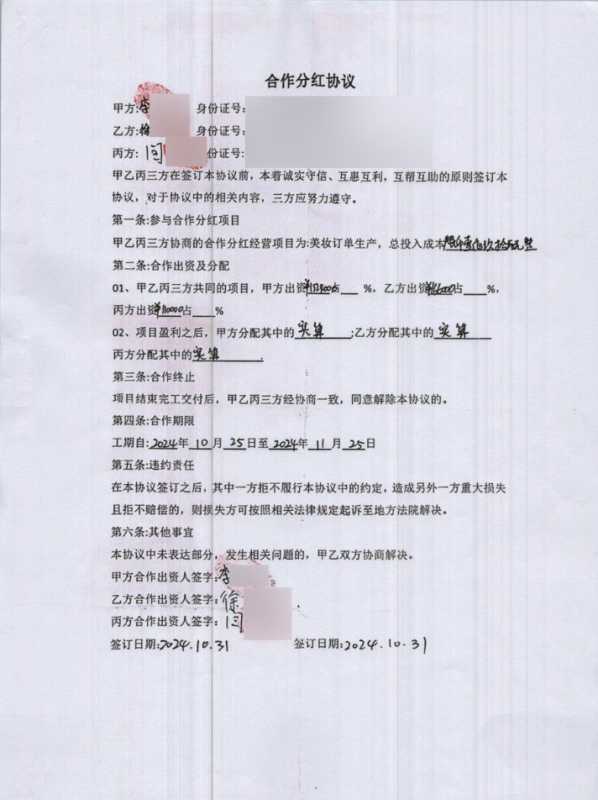 合作分红协议
甲方:李 身份证号:
乙方:徐 身份证号:
丙方: 闫 份证号:
甲乙丙三方在签订本协议前，本着诚实守信、互惠互利，互帮互助的原则签订本
协议，对于协议中的相关内容，三方应努力遵守。
第一条:参与合作分红项目
甲乙丙三方协商的合作分红经营项目为:美妆订单生产，总投入成本
第二条:合作出资及分配
01、甲乙丙三方共同的项目，甲方出资 占 %，乙方出资 占 %，
丙方出资 占 %
02、项目盈利之后，甲方分配其中的 实算 ;乙方分配其中的 实算
丙方分配其中的 实算 .
第三条:合作终止
项目结束完工交付后，甲乙丙三方经协商一致，同意解除本协议的。
第四条:合作期限
工期自:2024年 10 月 25 日至 2024年 11 月 25日
第五条:违约责任
在本协议签订之后，其中一方拒不履行本协议中的约定，造成另外一方重大损失
且拒不赔偿的，则损失方可按照相关法律规定起诉至地方法院解决。
第六条:其他事宜
本协议中未表达部分，发生相关问题的，甲乙双方协商解决。
甲方合作出资人签字:李
乙方合作出资人签字:徐
丙方合作出资人签字:闫
签订日期:2024.10.31 签订日期:2024.10.31